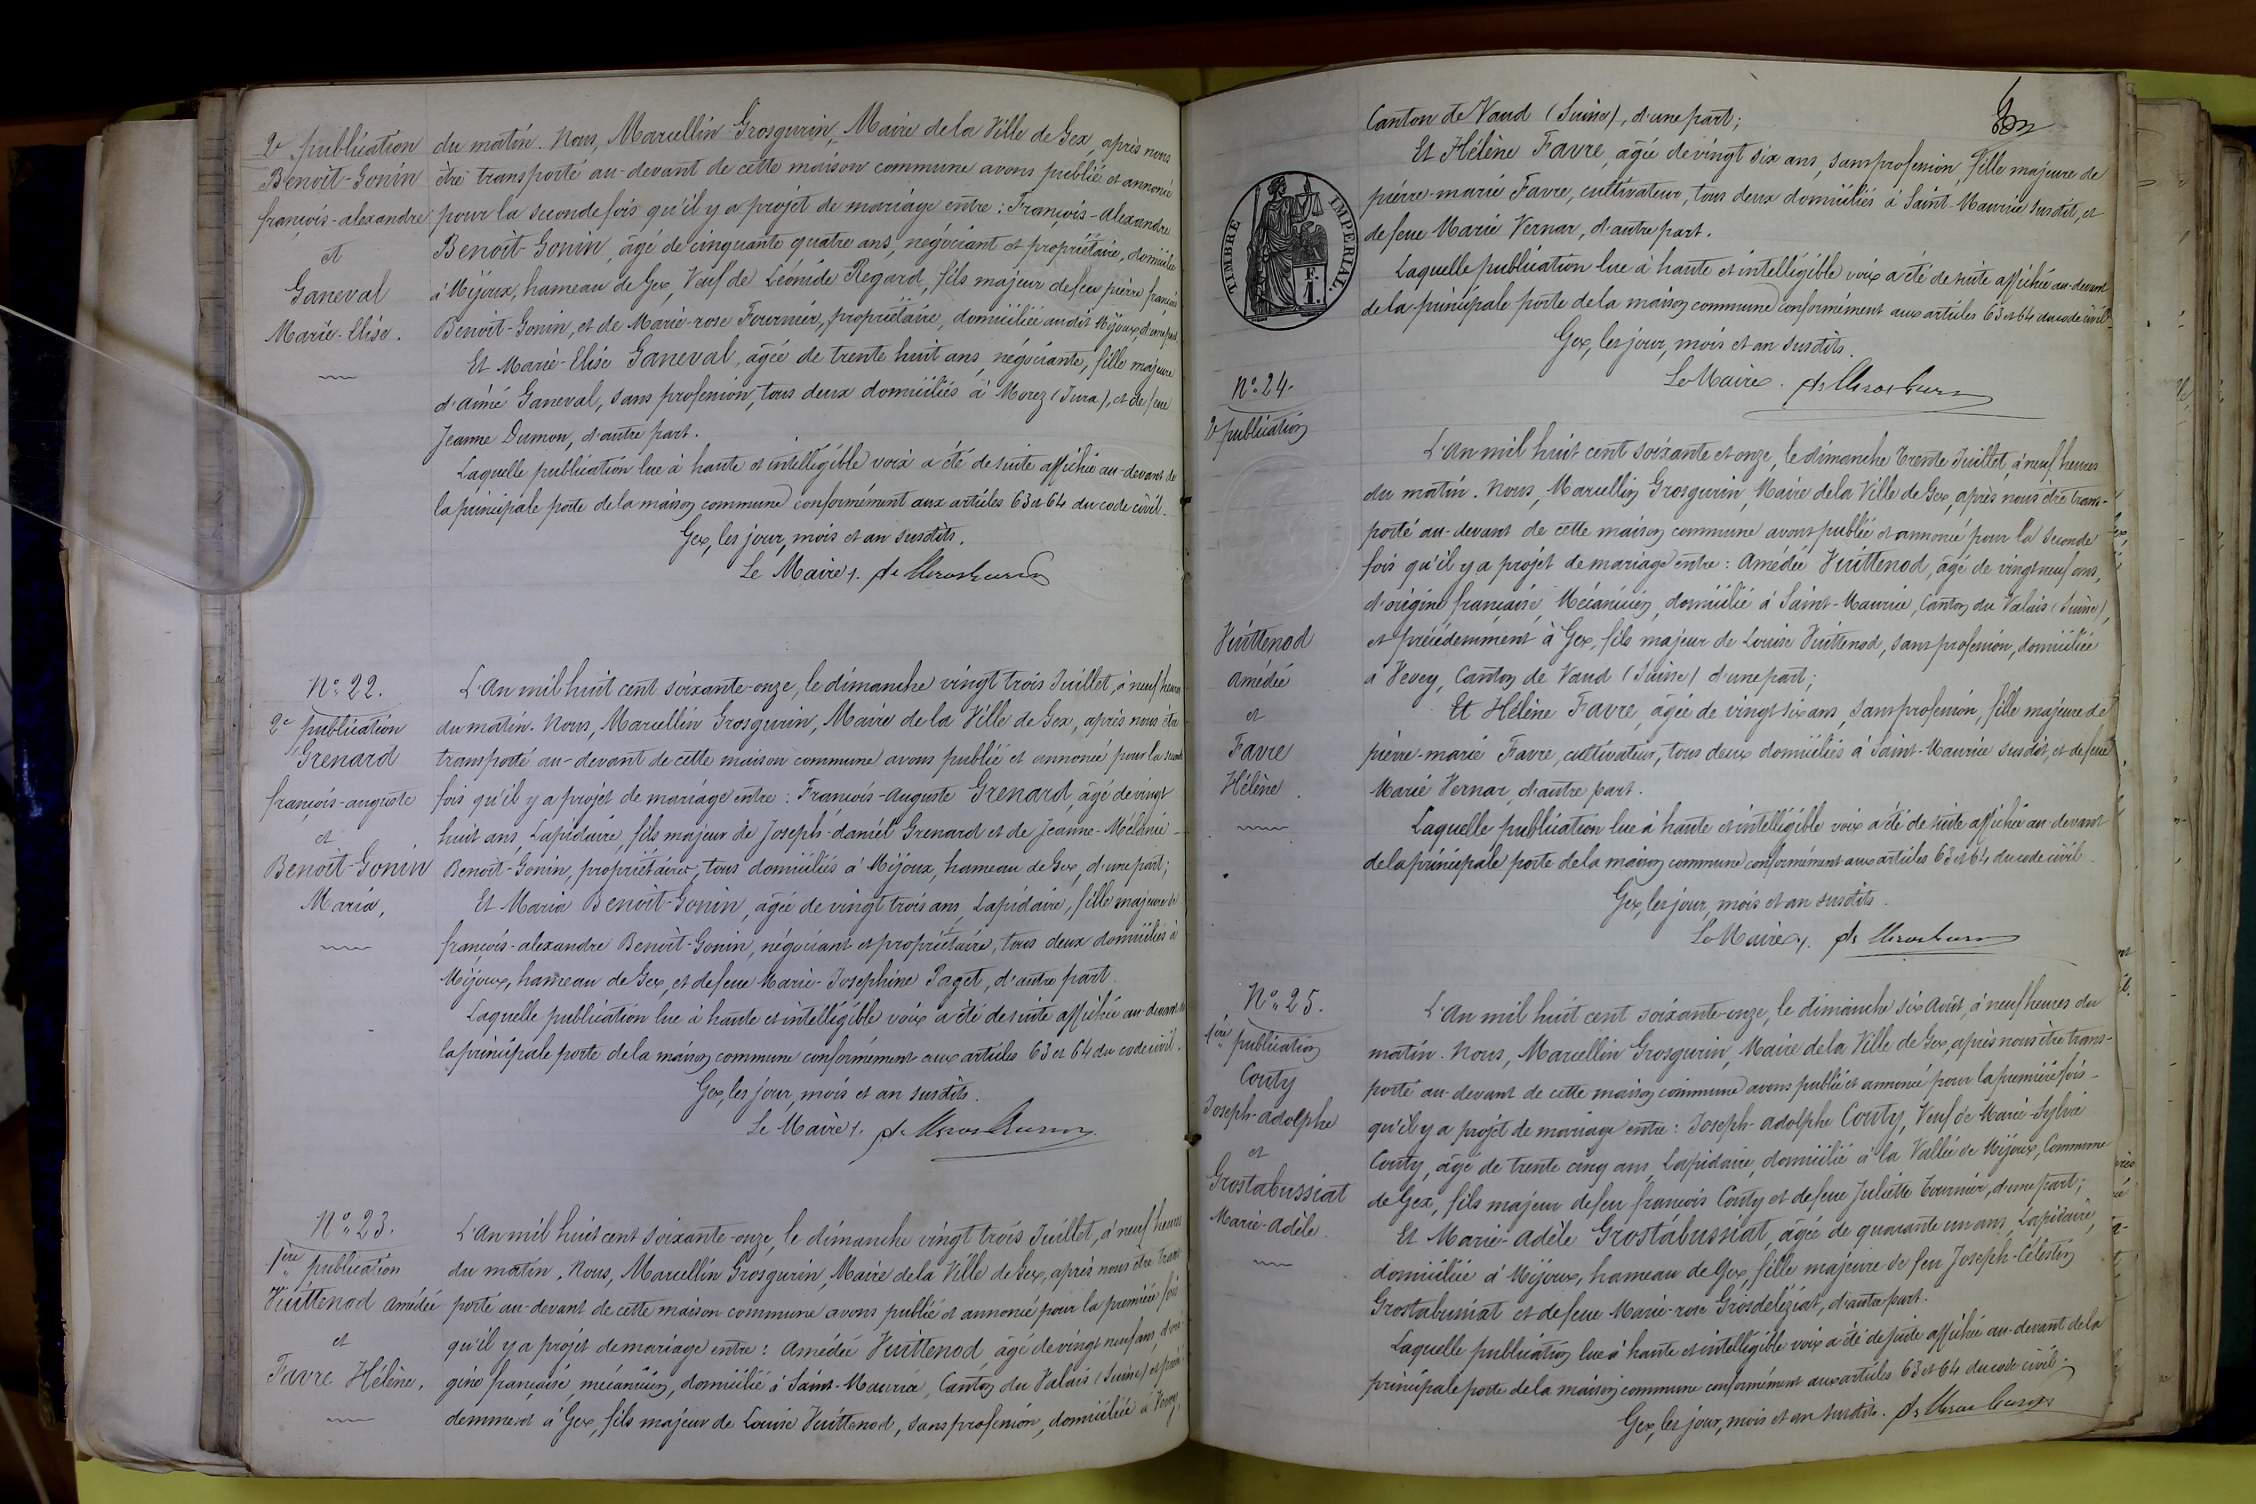 2e publication
Benoit-Gonin
françois-alexandre
et
Ganeval
Marie-Elise.
du matin. Nous, Marcellin Grosgurin, Maire de la Ville de Gex, après nous
être transporté au-devant de cette maison commune avons publié et annoncé
pour la seconde fois qu'il y a projet de mariage entre : François-Alexandre
Benoit-Gonin, âgé de cinquante quatre ans, négociant et propriétaire, domicilié
à Mijoux, hameau de Gex, Veuf de Léonide Regard, fils majeur de feu pierre françois
Benoit-Gonin, et de Marie-rose Fournier, propriétaire, domiciliée audit Mijoux, d'une part.
Et Marie-Elise Ganeval, âgée de trente huit ans, négociante, fille majeure
d'aimé Ganeval, sans profession, tous deux domiciliés à Morez (Jura), et de feue
Jeanne Dumon, d'autre part.
Laquelle publication lue à haute et intelligible voix a été de suite affichée au-devant de
la principale porte de la maison commune conformément aux articles 63 et 64 du code civil.
Gex, les jour, mois et an susdits.
Le Maire.
No 22.
2e publication
Grenard
françois-auguste
et
Benoit-Gonin
Maria,
L'An mil huit cent soixante-onze, le dimanche vingt trois Juillet, à neuf heures
du matin. Nous, Marcellin Grosgurin, Maire de la Ville de Gex, après nous être
transporté au-devant de cette maison commune avons publié et annoncé pour la seconde
fois qu'il y a projet de mariage entre : François-Auguste Grenard, âgé de vingt
huit ans, Lapidaire, fils majeur de Joseph-daniel Grenard et de Jeanne-Mélanie
Benoit-Gonin, propriétaires, tous domiciliés à Mijoux, hameau de Gex, d'une part;
Et Maria Benoit-Gonin, âgée de vingt trois ans, Lapidaire, fille majeure de
françois-alexandre Benoit-Gonin, négociant et propriétaire, tous deux domiciliés à
Mijoux, hameau de Gex, et de feue Marie-Josephine Paget, d'autre part.
Laquelle publication lue à haute et intelligible voix a été de suite affichée au-devant de
la principale porte de la maison commune conformément aux articles 63 et 64 du code civil.
Gex, les jour, mois et an susdits.
Le Maire.
No 23.
1ère publication
Vuittenod Amédée
et
Favre Hélène.
L'An mil huit cent soixante-onze, le dimanche vingt trois Juillet, à neuf heures
du matin. Nous, Marcellin Grosgurin, Maire de la Ville de Gex, après nous être trans-
porté au-devant de cette maison commune avons publié et annoncé pour la première fois
qu'il y a projet de mariage entre : Amédée Vuittenod, âgé de vingt neuf ans, d'ori-
gine française, mécanicien, domicilié à Saint-Maurice, Canton du Valais (Suisse) et précé-
demment à Gex, fils majeur de Louise Vuittenod, sans profession, domiciliée à Vevey,
Canton de Vaud (Suisse), d'une part;
Et Hélène Favre, âgée de vingt six ans, sans profession, fille majeure de
pierre-marie Favre, cultivateur, tous deux domiciliés à Saint-Maurice susdit, et
de feue Marie Vernar, d'autre part.
Laquelle publication lue à haute et intelligible voix a été de suite affichée au-devant
de la principale porte de la maison commune conformément aux articles 63 et 64 du code civil.
Gex, les jour, mois et an susdits.
Le Maire.
TIMBRE IMPERIAL.
F.
1.
No 24.
2e publication
Vuittenod
Amédée
et
Favre
Hélène.
L'An mil huit cent soixante et onze, le dimanche Trente Juillet, à neuf heures
du matin. Nous, Marcellin Grosgurin, Maire de la Ville de Gex, après nous être trans-
porté au-devant de cette maison commune avons publié et annoncé pour la seconde
fois qu'il y a projet de mariage entre : Amédée Vuittenod, âgé de vingt neuf ans,
d'origine française, Mécanicien, domicilié à Saint-Maurice, Canton du Valais (Suisse),
et précédemment à Gex, fils majeur de Louise Vuittenod, sans profession, domiciliée
à Vevey, Canton de Vaud (Suisse) d'une part;
Et Hélène Favre, âgée de vingt six ans, sans profession, fille majeure de
pierre-marie Favre, cultivateur, tous deux domiciliés à Saint-Maurice susdit, et de feue
Marie Vernar, d'autre part.
Laquelle publication lue à haute et intelligible voix a été de suite affichée au-devant
de la principale porte de la maison commune conformément aux articles 63 et 64 du code civil.
Gex, les jour, mois et an susdits.
Le Maire.
No 25.
1ère publication
Couty
Joseph-adolphe
et
Grostabussiat
Marie-Adèle.
L'An mil huit cent soixante-onze, le dimanche six Août, à neuf heures du
matin. Nous, Marcellin Grosgurin, Maire de la Ville de Gex, après nous être trans-
porté au-devant de cette maison commune avons publié et annoncé pour la première fois
qu'il y a projet de mariage entre : Joseph-adolphe Couty, Veuf de Marie-Sylvie
Couty, âgé de trente cinq ans, Lapidaire, domicilié à la Vallée de Mijoux, Commune
de Gex, fils majeur de feu françois Couty et de feue Juliette Tournier, d'une part;
Et Marie-Adèle Grostabussiat, âgée de quarante un ans, Lapidaire,
domiciliée à Mijoux, hameau de Gex, fille majeure de feu Joseph-Célestin
Grostabussiat et de feue Marie-rose Grosdeliziat, d'autre part.
Laquelle publication lue à haute et intelligible voix a été de suite affichée au-devant de la
principale porte de la maison commune conformément aux articles 63 et 64 du code civil.
Gex, les jour, mois et an susdits.